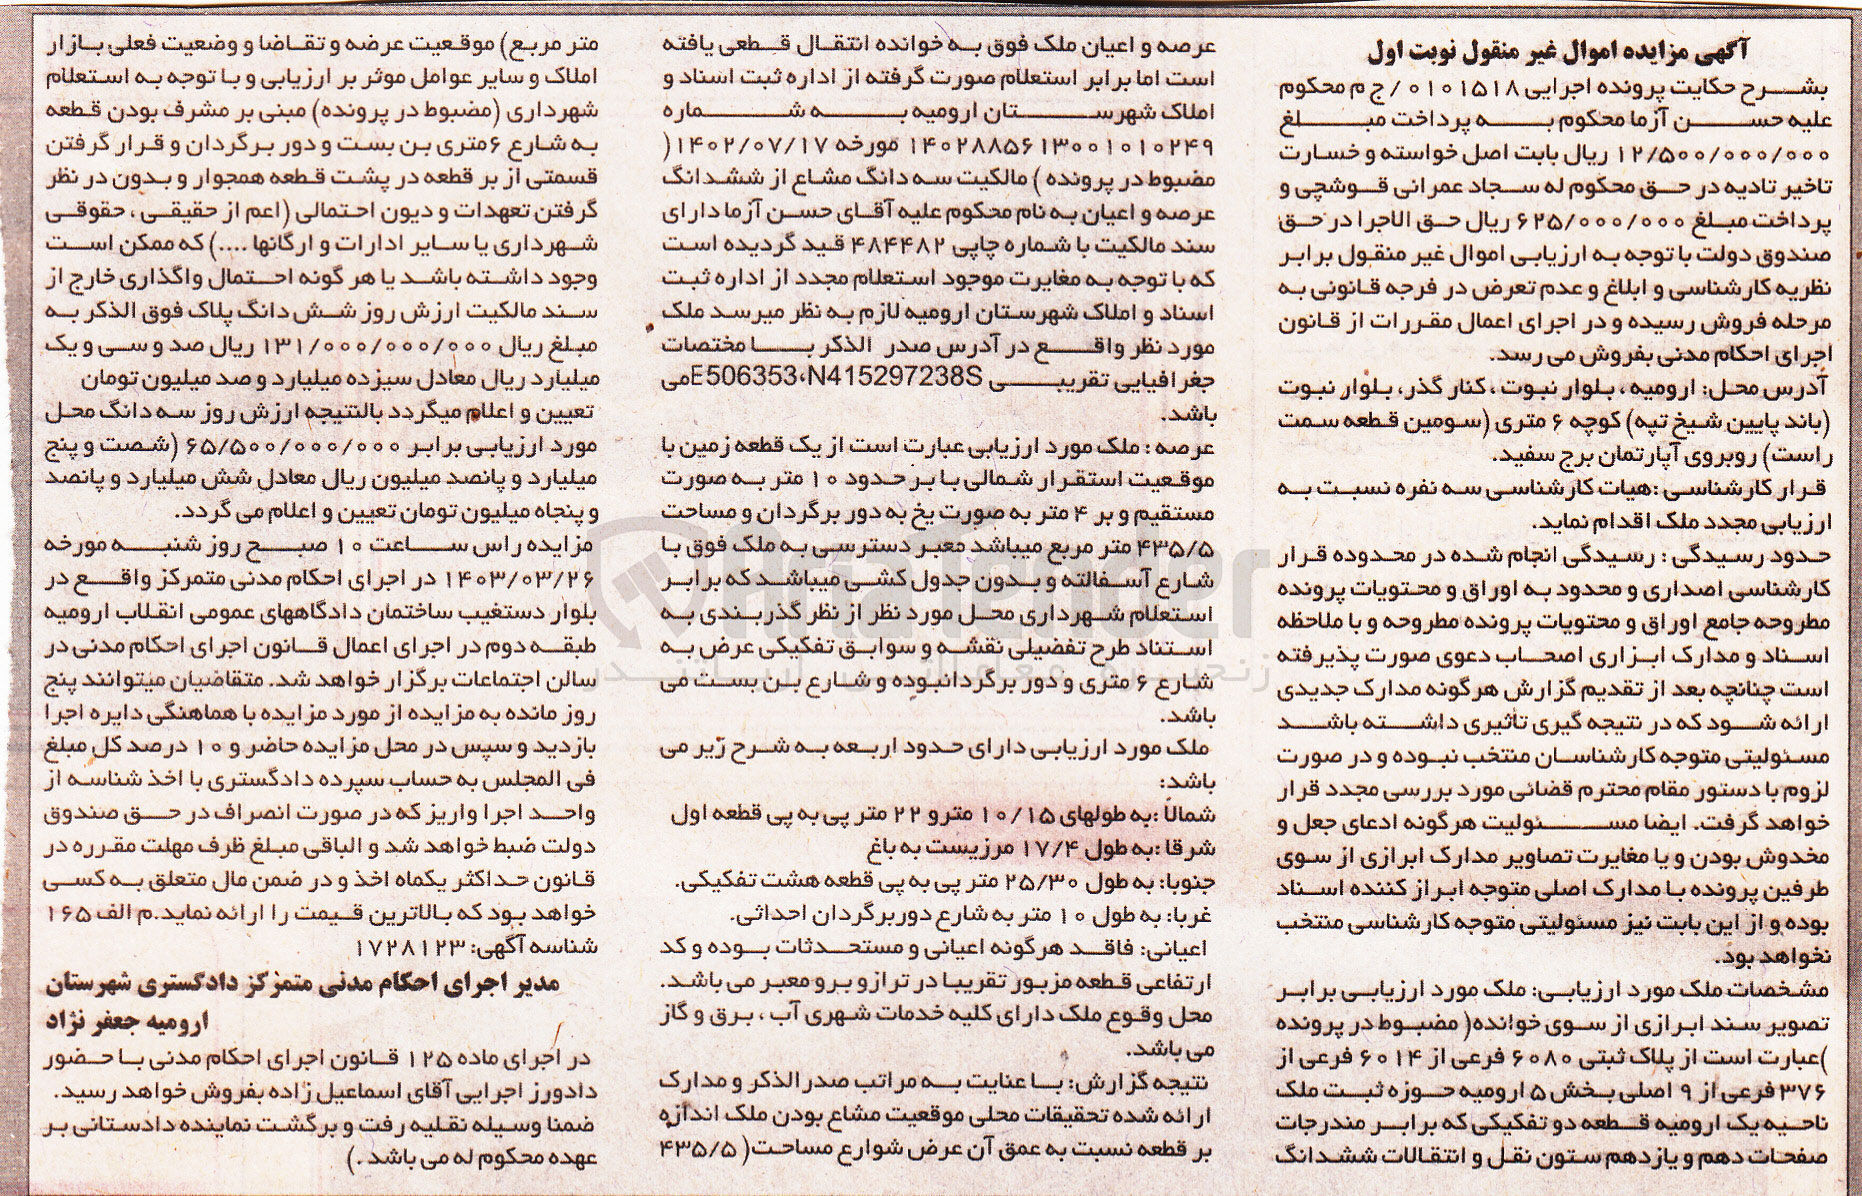 آگهی مزایده اموال غیر منقول نوبت اول
بشرح حکایت پرونده اجرایی ۰۱۰۱۵۱۸/ ج م محکوم
علیه حسن آزما محکوم به پرداخت مبلغ
۱۲/۵۰۰/۰۰۰/۰۰۰ ریال بابت اصل خواسته و خسارت
تاخیر تادیه در حق محکوم له سجاد عمرانی قوشچی و
پرداخت مبلغ ۶۲۵/۰۰۰/۰۰۰ ریال حق الاجرا در حق
صندوق دولت با توجه به ارزیابی اموال غیر منقول برابر
نظریه کارشناسی و ابلاغ و عدم تعرض در فرجه قانونی به
مرحله فروش رسیده و در اجرای اعمال مقررات از قانون
اجرای احکام مدنی بفروش می رسد.
آدرس محل: ارومیه ، بلوار نبوت ، کنار گذر، بلوار نبوت
(باند پایین شیخ تپه) کوچه ۶ متری (سومین قطعه سمت
راست) روبروی آپارتمان برج سفید.
قرار کارشناسی :هیات کارشناسی سه نفره نسبت به
ارزیابی مجدد ملک اقدام نماید.
حدود رسیدگی : رسیدگی انجام شده در محدوده قرار
کارشناسی اصداری و محدود به اوراق و محتویات پرونده
مطروحه جامع اوراق و محتویات پرونده مطروحه و با ملاحظه
اسناد و مدارک ابزاری اصحاب دعوی صورت پذیرفته
است چنانچه بعد از تقدیم گزارش هرگونه مدارک جدیدی
ارائه شود که در نتیجه گیری تاثیری داشته باشد
مسئولیتی متوجه کارشناسان منتخب نبوده و در صورت
لزوم با دستور مقام محترم قضائی مورد بررسی مجدد قرار
خواهد گرفت. ایضا مسئولیت هرگونه ادعای جعل و
مخدوش بودن و یا مغایرت تصاویر مدارک ابرازی از سوی
طرفین پرونده با مدارک اصلی متوجه ابراز کننده اسناد
بوده و از این بابت نیز مسئولیتی متوجه کارشناسی منتخب
نخواهد بود.
مشخصات ملک مورد ارزیابی: ملک مورد ارزیابی برابر
تصویر سند ابرازی از سوی خوانده( مضبوط در پرونده
)عبارت است از پلاک ثبتی ۶۰۸۰ فرعی از ۶۰۱۴ فرعی از
۳۷۶ فرعی از ۹ اصلی بخش ۵ ارومیه حوزه ثبت ملک
ناحیه یک ارومیه قطعه دو تفکیکی که برابر مندرجات
صفحات دهم و یازدهم ستون نقل و انتقالات ششدانگ
عرصه و اعیان ملک فوق به خوانده انتقال قطعی یافته
است اما برابر استعلام صورت گرفته از اداره ثبت اسناد و
املاک شهرستان ارومیه به شماره
۱۴۰۲۸۸۵۶۱۳۰۰۱۰۱۰۲۴۹ مورخه ۱۴۰۲/۰۷/۱۷(
مضبوط در پرونده ) مالکیت سه دانگ مشاع از ششدانگ
عرصه و اعیان به نام محکوم علیه آقای حسن آزما دارای
سند مالکیت با شماره چاپی ۴۸۴۴۸۲ قید گردیده است
که با توجه به مغایرت موجود استعلام مجدد از اداره ثبت
اسناد و املاک شهرستان ارومیه لازم به نظر میرسد ملک
مورد نظر واقع در آدرس صدر الذکر با مختصات
جغرافیایی تقریبی E506353،N415297238Sمی
باشد.
عرصه : ملک مورد ارزیابی عبارت است از یک قطعه زمین با
موقعیت استقرار شمالی با بر حدود ۱۰ متر به صورت
مستقیم و بر ۴ متر به صورت یخ به دور برگردان و مساحت
۴۳۵/۵ متر مربع میباشد معبر دسترسی به ملک فوق با
شارع آسفالته و بدون جدول کشی میباشد که برابر
استعلام شهرداری محل مورد نظر از نظر گذربندی به
استناد طرح تفضیلی نقشه و سوابق تفکیکی عرض به
شارع ۶ متری و دور برگردانبوده و شارع بن بست می
باشد.
ملک مورد ارزیابی دارای حدود اربعه به شرح زیر می
باشد:
شمالاً :به طولهای ۱۰/۱۵ مترو ۲۲ متر پی به پی قطعه اول
شرقا :به طول ۱۷/۴ مرزیست به باغ
جنوبا: به طول ۲۵/۳۰ متر پی به پی قطعه هشت تفکیکی.
غربا: به طول ۱۰ متر به شارع دوربرگردان احداثی.
اعیانی: فاقد هرگونه اعیانی و مستحدثات بوده و کد
ارتفاعی قطعه مزبور تقریبا در ترازو برو معبر می باشد.
محل وقوع ملک دارای کلیه خدمات شهری آب ، برق و گاز
می باشد.
نتیجه گزارش: با عنایت به مراتب صدر الذکر و مدارک
ارائه شده تحقیقات محلی موقعیت مشاع بودن ملک اندازه
بر قطعه نسبت به عمق آن عرض شوارع مساحت( ۴۳۵/۵
متر مربع) موقعیت عرضه و تقاضا و وضعیت فعلی بازار
املاک و سایر عوامل موثر بر ارزیابی و با توجه به استعلام
شهرداری (مضبوط در پرونده) مبنی بر مشرف بودن قطعه
به شارع ۶متری بن بست و دور برگردان و قرار گرفتن
قسمتی از بر قطعه در پشت قطعه همجوار و بدون در نظر
گرفتن تعهدات و دیون احتمالی (اعم از حقیقی ، حقوقی
شهرداری یا سایر ادارات و ارگانها ....) که ممکن است
وجود داشته باشد یا هر گونه احتمال واگذاری خارج از
سند مالکیت ارزش روز شش دانگ پلاک فوق الذکر به
مبلغ ریال ۱۳۱/۰۰۰/۰۰۰/۰۰۰ ریال صد و سی و یک
میلیارد ریال معادل سیزده میلیارد و صد میلیون تومان
تعیین و اعلام میگردد بالنتیجه ارزش روز سه دانگ محل
مورد ارزیابی برابر ۶۵/۵۰۰/۰۰۰/۰۰۰ (شصت و پنج
میلیارد و پانصد میلیون ریال معادل شش میلیارد و پانصد
و پنجاه میلیون تومان تعیین و اعلام می گردد.
مزایده راس ساعت ۱۰ صبح روز شنبه مورخه
۱۴۰۳/۰۳/۲۶ در اجرای احکام مدنی متمرکز واقع در
بلوار دستغیب ساختمان دادگاههای عمومی انقلاب ارومیه
طبقه دوم در اجرای اعمال قانون اجرای احکام مدنی در
سالن اجتماعات برگزار خواهد شد. متقاضیان میتوانند پنج
روز مانده به مزایده از مورد مزایده با هماهنگی دایره اجرا
بازدید و سپس در محل مزایده حاضر و ۱۰ درصد کل مبلغ
فی المجلس به حساب سپرده دادگستری با اخذ شناسه از
واحد اجرا واریز که در صورت انصراف در حق صندوق
دولت ضبط خواهد شد و الباقی مبلغ ظرف مهلت مقرره در
قانون حداکثر یکماه اخذ و در ضمن مال متعلق به کسی
خواهد بود که بالاترین قیمت را ارائه نماید.م الف ۱۶۵
شناسه آگهی: ۱۷۲۸۱۲۳
مدیر اجرای احکام مدنی متمرکز دادگستری شهرستان
ارومیه جعفر نژاد
در اجرای ماده ۱۲۵ قانون اجرای احکام مدنی با حضور
دادورز اجرایی آقای اسماعیل زاده بفروش خواهد رسید.
ضمنا وسیله نقلیه رفت و برگشت نماینده دادستانی بر
عهده محکوم له می باشد .)
AriaTender